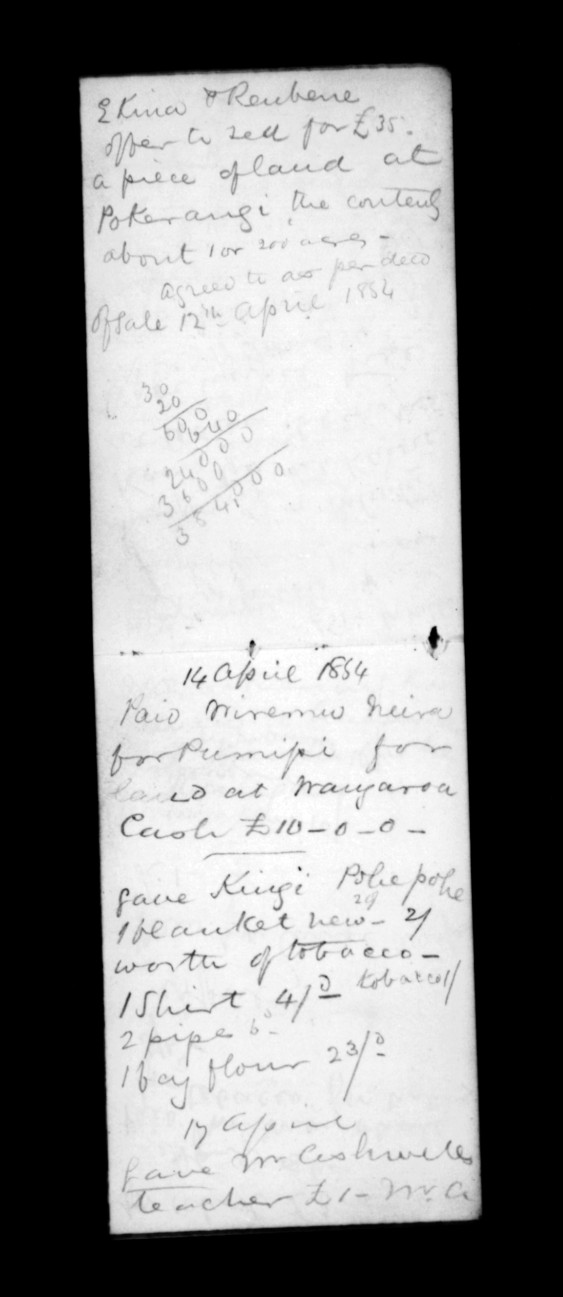 E Kina & Reubene
offer to sell for £35.
a piece of land at
Pokerangi the contents
about 1 or 200 acres -
agreed to as per deed
of sale 12th April 1854
30
20
600
640
24000
3600
384000
14 April 1854
Paid Wiremu Neira
for Pumipi for
land at Wangaroa
Cash £10-0-0-
gave Kingi Pohepohe
1 blanket new - 2/
worth of tobacco -
1 Shirt 4/- tobacco 1/
2 pipe 6d
1 bag flour 23/-
17 April
gave Mr Ashwells
teacher £1 - Mr. A